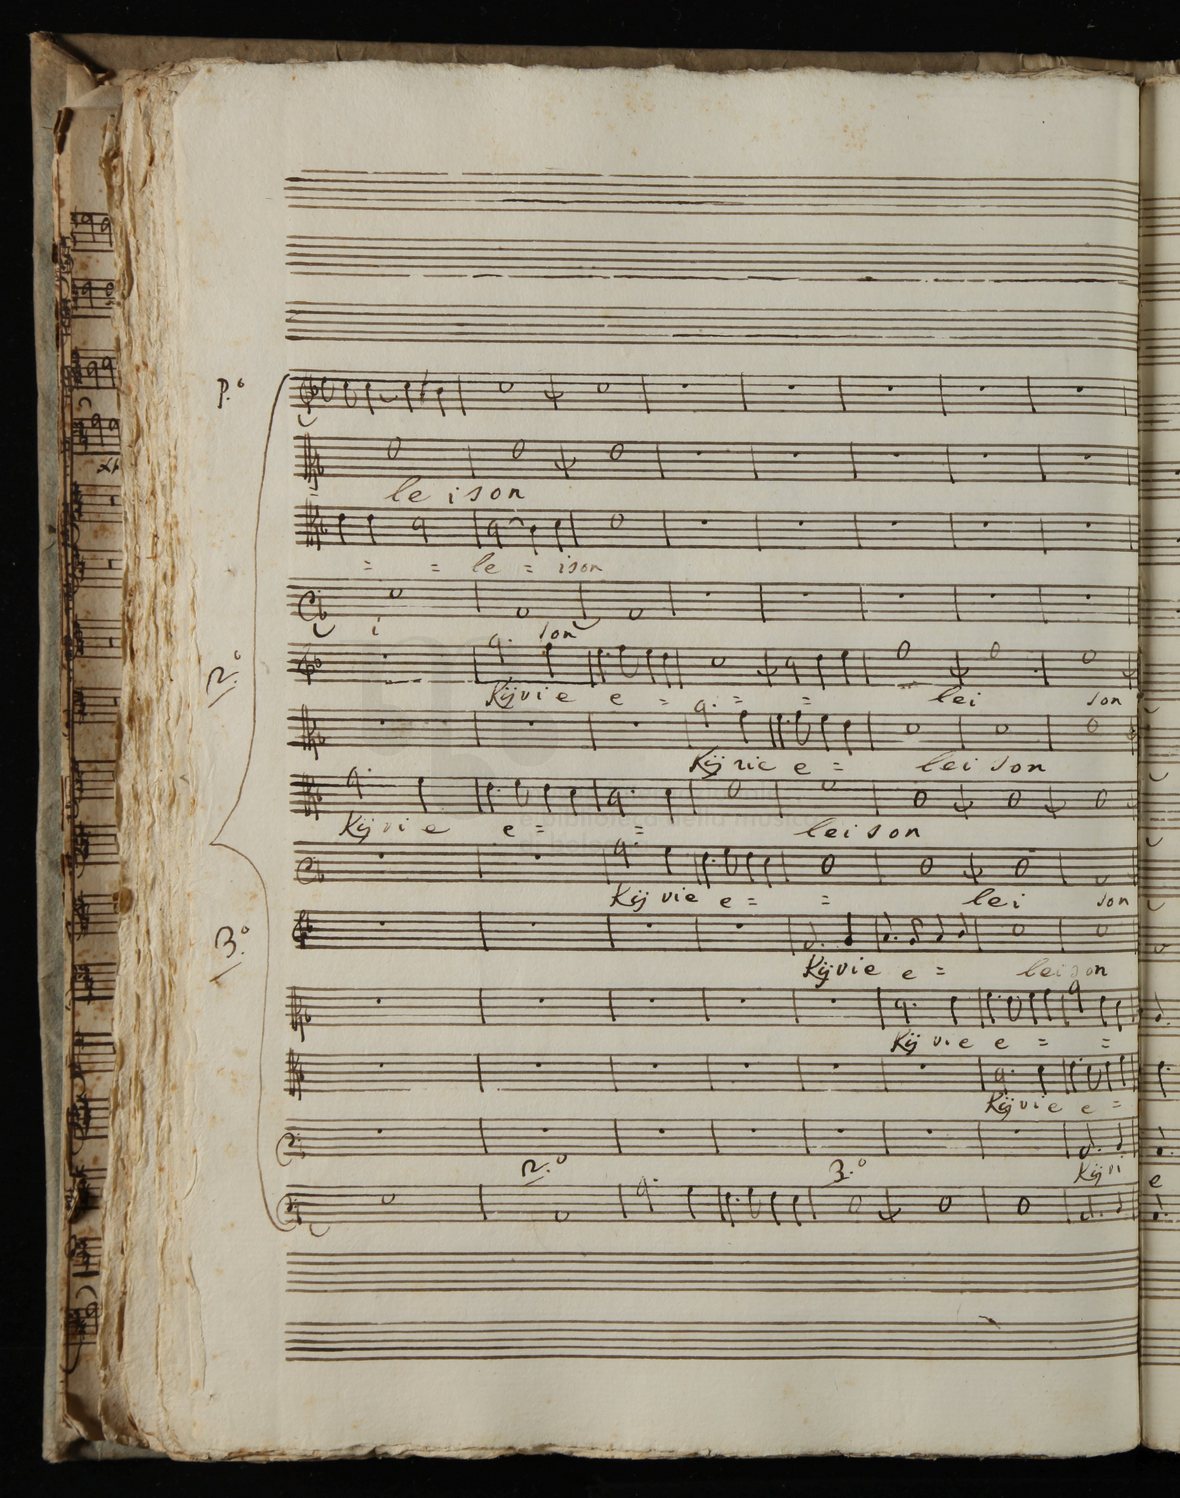 p.º
le ison
= = le = ison
i son
2.º
Kijrie e = = = lei son
Kijrie e = lei son
Kijrie e = = leison
Kijrie e = = lei son
3.º
Kijrie e = leison
Kijrie e = =
Kijrie e =
2.º 3.º Kijri
e